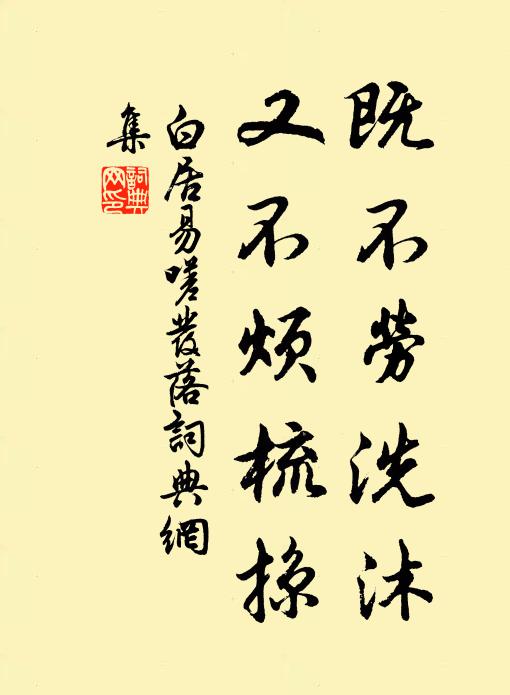 既不勞洗沐
又不煩梳掠
白居易嗟發落詞典網
集
詞典網印